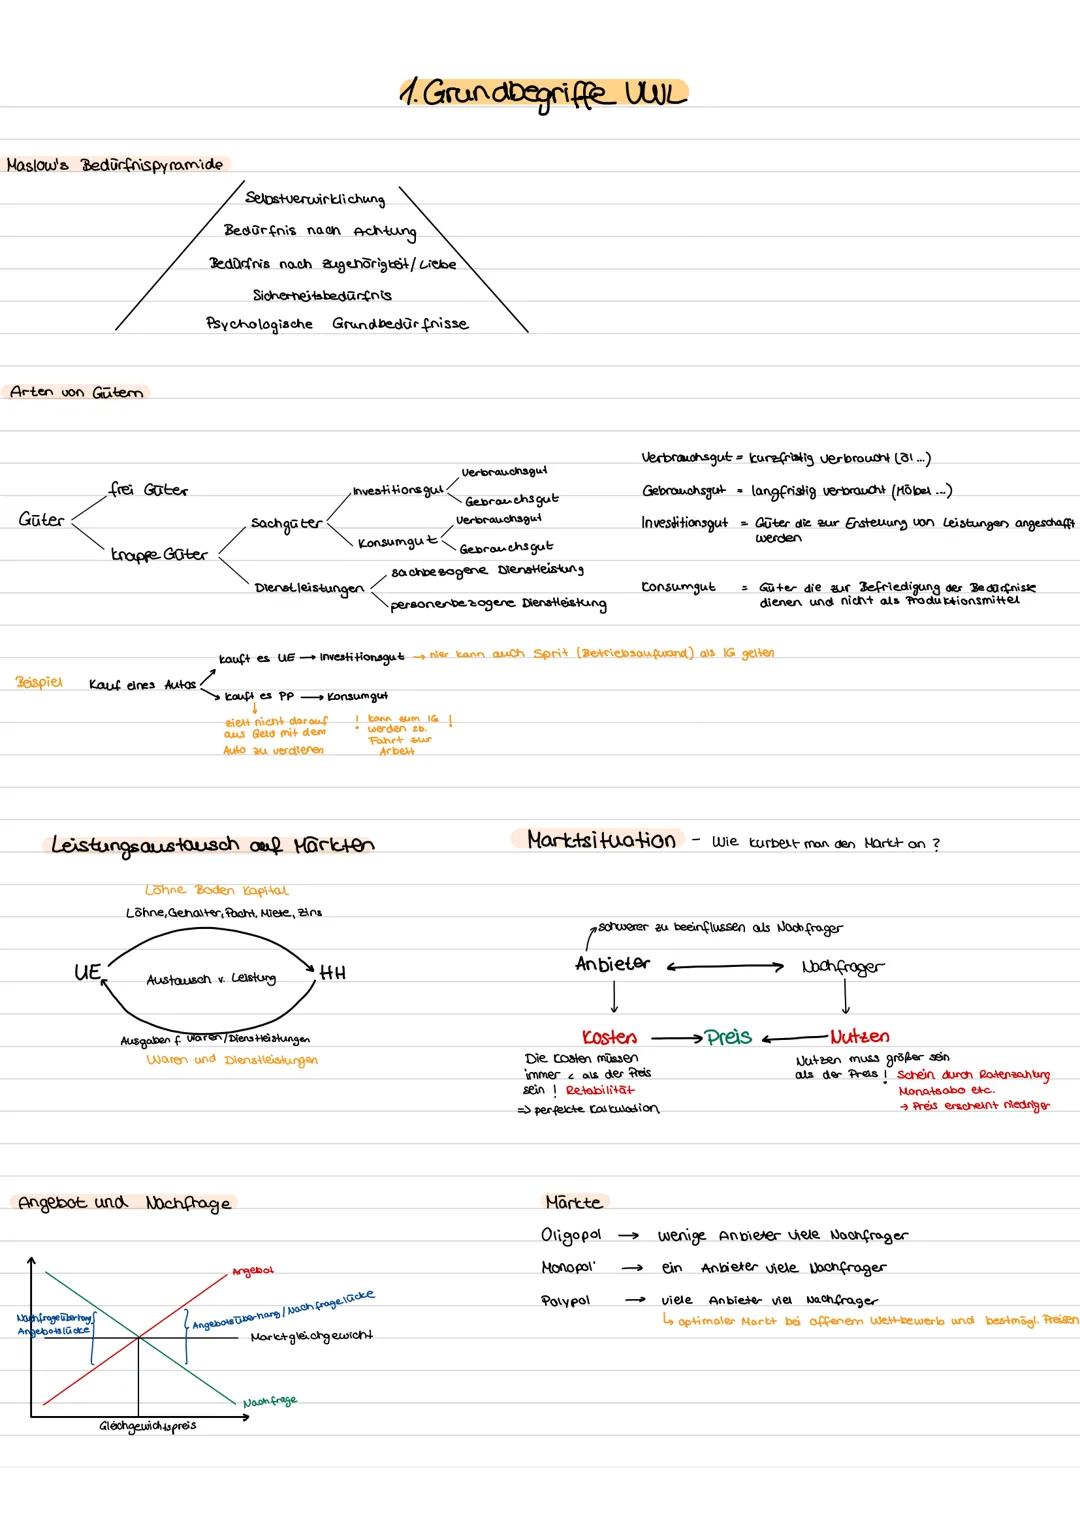 1. Grundbegriffe VWL
Maslow's Bedürfnispyramide
Selbstverwirklichung
Bedürfnis nach Achtung
Bedürfnis nach Zugehörigkeit/Liebe
Sicherheitsbedürfnis
Psychologische Grundbedürfnisse
Arten von Gütern
Güter
frei Güter
knappe Güter
Sachgüter
Dienstleistungen
Investitionsgut
Konsumgut
Verbrauchsgut
Gebrauchsgut
Verbrauchsgut
Gebrauchsgut
sachbezogene Dienstleistung
personenbezogene Dienstleistung
Verbrauchsgut = kurzfristig verbraucht (Öl...)
Gebrauchsgut = langfristig verbraucht (Möbel...)
Investitionsgut = Güter die zur Erstellung von Leistungen angeschafft
werden
Konsumgut = Güter die zur Befriedigung der Bedürfnisse
dienen und nicht als Produktionsmittel
Beispiel Kauf eines Autos
kauft es UE → Investitionsgut → hier kann auch Sprit (Betriebsaufwand) als IG gelten
kauft es PP → Konsumgut
zielt nicht darauf
aus Geld mit dem
Auto zu verdienen
! kann zum IG !
werden zb.
Fahrt zur
Arbeit
Leistungsaustausch auf Märkten
Löhne Boden Kapital
Löhne, Gehälter, Pacht, Miete, Zins
UE
Austausch v. Leistung
HH
Ausgaben f. Waren/Dienstleistungen
Waren und Dienstleistungen
Marktsituation - Wie kurbelt man den Markt an?
schwerer zu beeinflussen als Nachfrager
Anbieter ↔ Nachfrager
Kosten → Preis ← Nutzen
Die Kosten müssen
immer < als der Preis
sein ! Retabilität
=> perfekte Kalkulation
Nutzen muss größer sein
als der Preis ! Schein durch Ratenzahlung
Monatsabo etc.
→ Preis erscheint niedriger
Angebot und Nachfrage
Angebot
Nachfrageüberhang/
Angebotslücke
Angebotsüberhang/Nachfragelücke
Marktgleichgewicht
Nachfrage
Gleichgewichtspreis
Märkte
Oligopol → wenige Anbieter viele Nachfrager
Monopol → ein Anbieter viele Nachfrager
Polypol → viele Anbieter viel Nachfrager
↳ optimaler Markt bei offenem Wettbewerb und bestmögl. Preisen